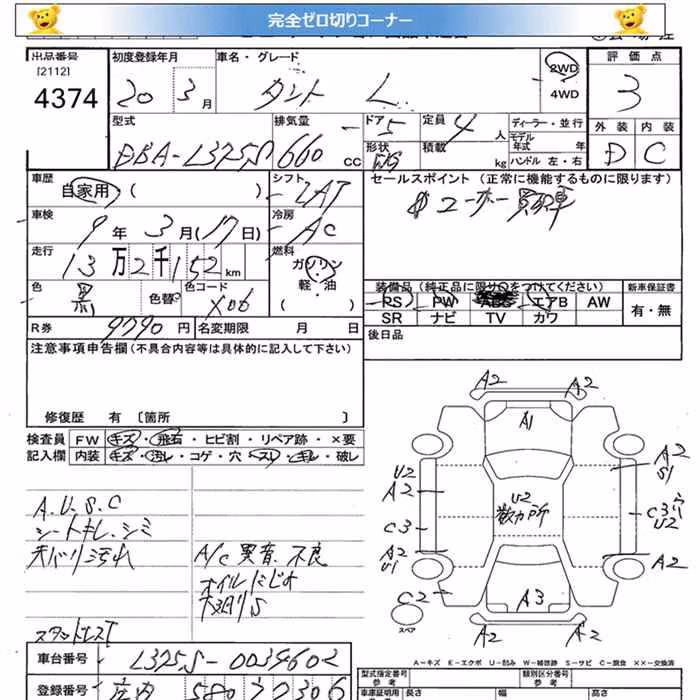 完全ゼロ切りコーナー
出品番号
[2112]
4374
初度登録年月
20 3月
車名・グレード
タント L
2WD
4WD
評価点
3
外装 内装
D C
型式
DBA-L325S
排気量
660 CC
ドア
5
形状
定員
4人
積載
kg
ディーラー・並行
モデル年式 年
ハンドル 左・右
車歴
自家用・( )
シフト
車検
9年3月(17日)
冷房
AC
走行
13万2千152km
燃料
ガソリン
軽・油
( )
色
黒
色替
色コード
X06
R券
9790円
名変期限 月 日
セールスポイント (正常に機能するものに限ります)
ユーザー買取車
装備品(純正品に限り○をつけてください)
PS PW ABS エアB AW
SR ナビ TV カワ
新車保証書
有・無
後日品
注意事項申告欄(不具合内容等は具体的に記入して下さい)
修復歴 有 〔箇所 〕
検査員記入欄
FW キズ・飛石・ヒビ割・リペア跡・×要
内装 キズ・汚レ・コゲ・穴・スレ・キレ・破レ
A.U.S.C
シートキレ、シミ
天バリ汚れ
A/C 異音、不良
オイルにじみ
下廻りS
車台番号
L325S-0039602
登録番号
庄内 580
A2 A2
A1
A2
S1
U2
A2
U2
数カ所
C3
U2
C3
A2
U1
A2
C2
A3
スペア
A2 A2
A-キズ E-エクボ U-凹み W-補修跡 S-サビ C-腐食 ××-交換済
型式指定番号
類別区分番号
車庫証明用
長さ
幅
高さ